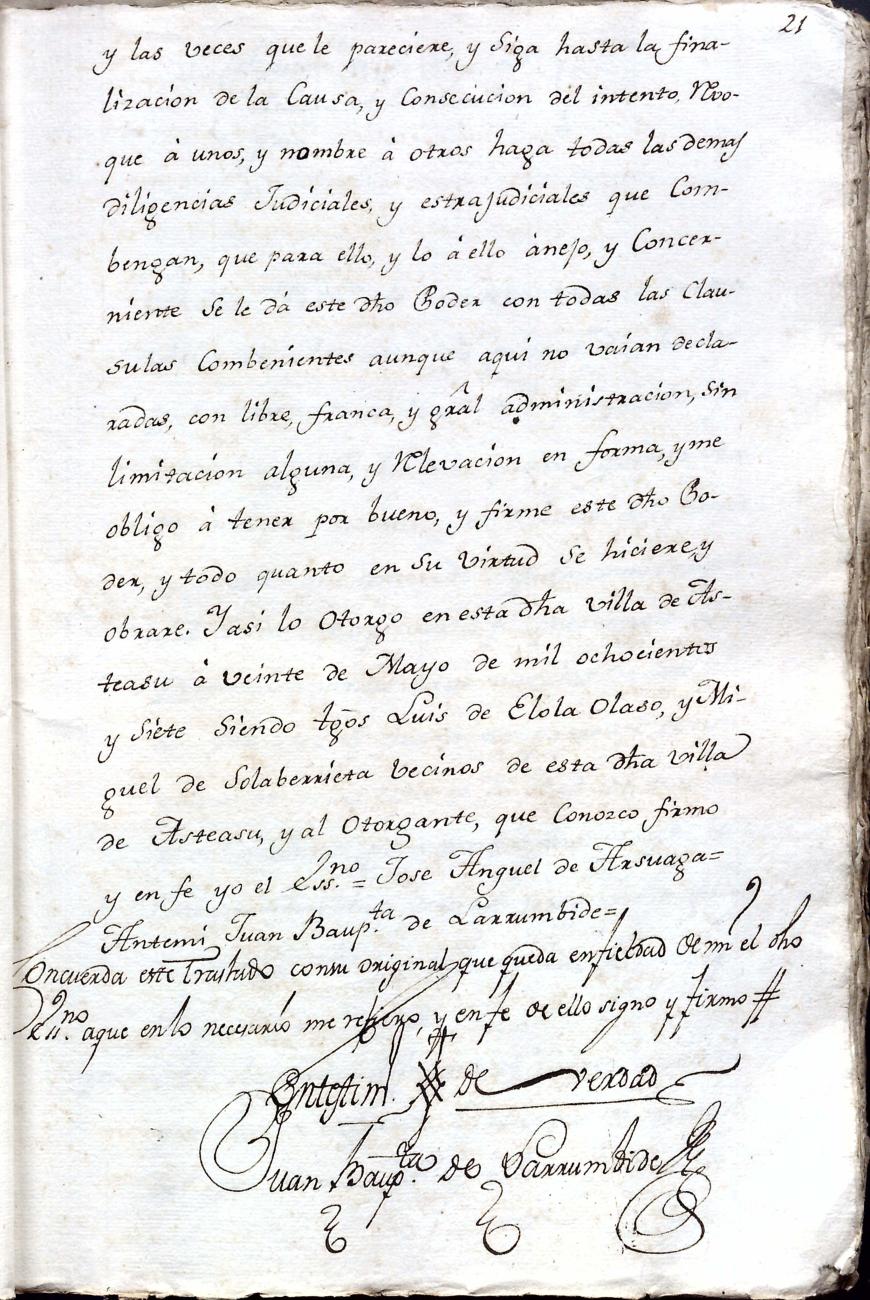 21
y las veces que le pareciere, y siga hasta la fina-
lizacion de la Causa, y Consecucion del intento, Rvo-
que à unos, y nombre à otros haga todas las demas
diligencias Judiciales, y estrajudiciales que Com-
bengan, que para ello, y lo à ello ànejo, y Concer-
niente se le dà este dho Poder con todas las Clau-
sulas Combenientes aunque aqui no vaian decla-
radas, con libre, franca, y gral administracion, sin
limitacion alguna, y Rlevacion en forma, y me
obligo à tener por bueno, y firme este dho Po-
der, y todo quanto en su virtud se hiciere, y
obrare. Y asi lo Otorgo en esta dha villa de As-
teasu à veinte de Mayo de mil ochocientos
y siete siendo tgos Luis de Elola Olaso, y Mi-
guel de Solaberrieta vecinos de esta dha villa
de Asteasu, y al Otorgante, que Conozco firmo
y en fe yo el Essno = Jose Anguel de Arsuaga =
Antemi Juan Baupta de Larrumbide =
Concuerda este Traslado con su original que queda en fieldad de mi el dho
Essno. a que en lo necesario me refiero, y en fe de ello signo y firmo #
En testim. de verdad
Juan Baupta de Larrumbide